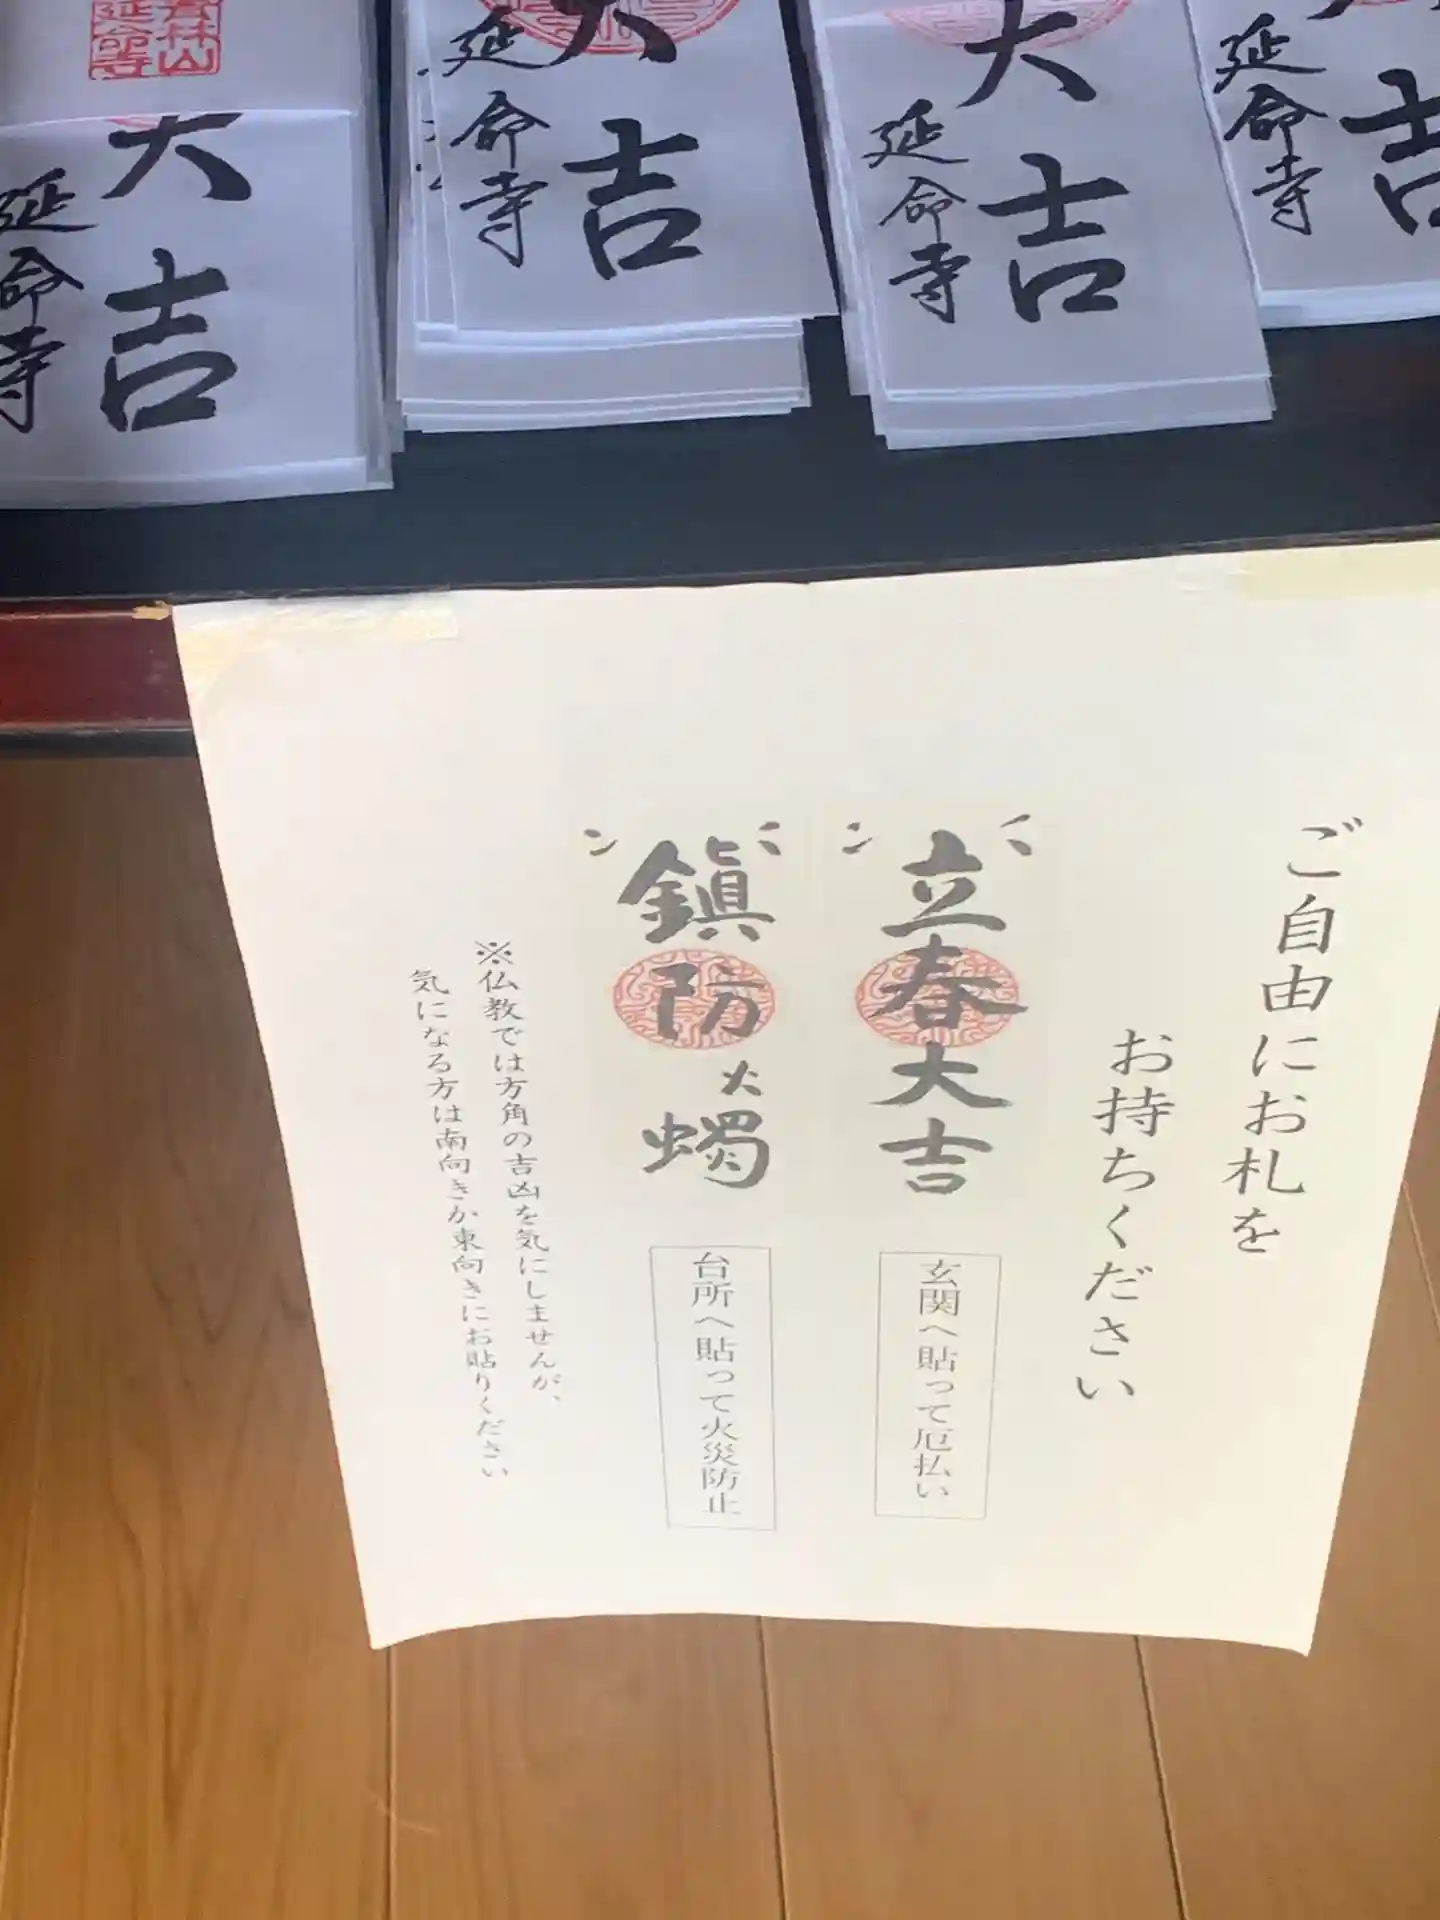 春林山
延命寺
大吉
延命寺
大吉
延命寺
大吉
延命寺
延命寺
ご自由にお札を
お持ちください
立春大吉
玄関へ貼って厄払い
鎮防火燭
台所へ貼って火災防止
※仏教では方角の吉凶を気にしませんが、
気になる方は南向きか東向きにお貼りください